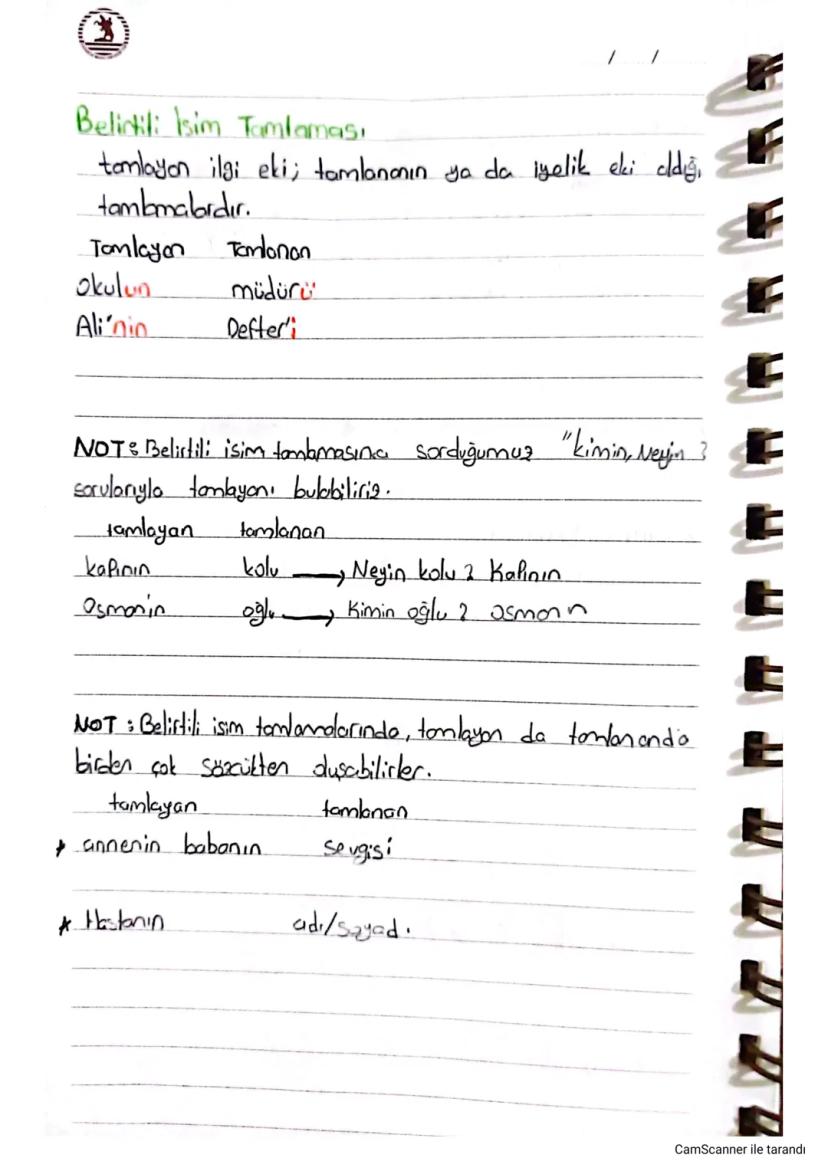 / /
Belirtili İsim Tamlaması
tamlayan ilgi eki; tamlananın ya da iyelik eki aldığı
tamlamalardır.
Tamlayan Tamlanan
Okulun müdürü
Ali'nin Defter'i
NOT: Belirtili isim tamlamasına sorduğumuz "kimin, Neyin ?
sorularıyla tamlayanı bulabiliriz.
tamlayan tamlanan
kapının kolu → Neyin kolu ? Kapının
Osman'ın oğlu → Kimin oğlu ? Osmanın
NOT : Belirtili isim tamlamalarında, tamlayan da tamlananda
birden çok sözcükten oluşabilirler.
tamlayan tamlanan
* annenin babanın sevgisi
* Hastanın adı/soyadı
CamScanner ile tarandı